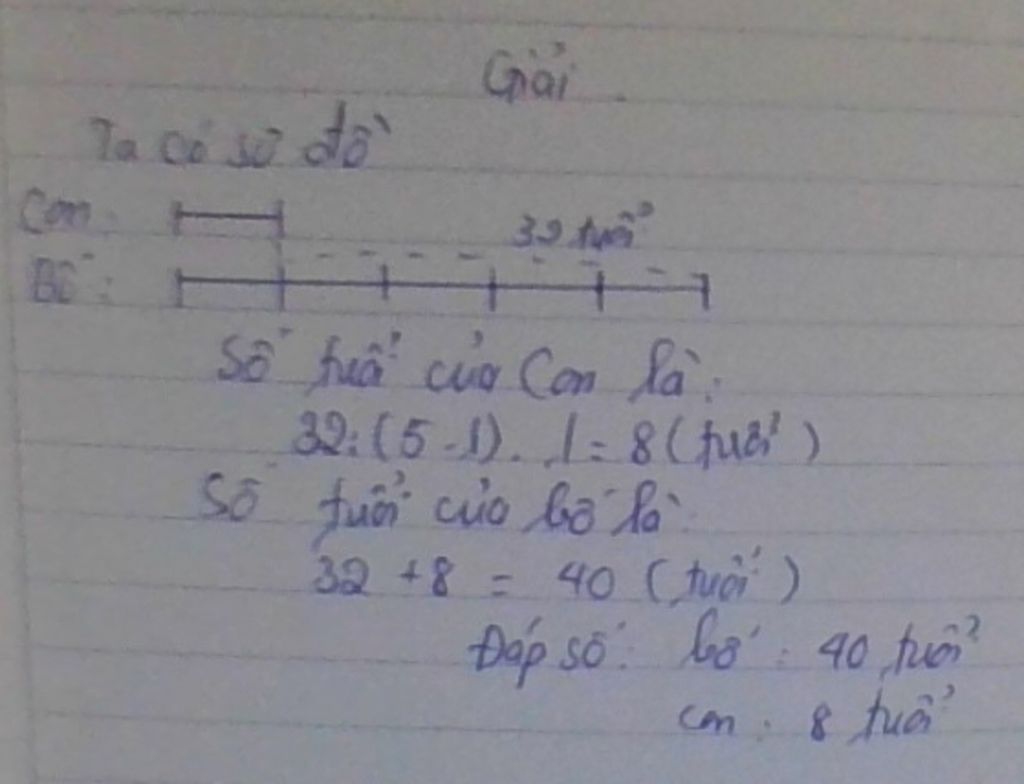 Giải
Ta có sơ đồ
Con:
32 tuổi
Bố:
Số tuổi của Con là:
32:(5-1).1=8(tuổi)
Số tuổi của bố là:
32+8 = 40 (tuổi)
Đáp số: bố: 40 tuổi
con: 8 tuổi